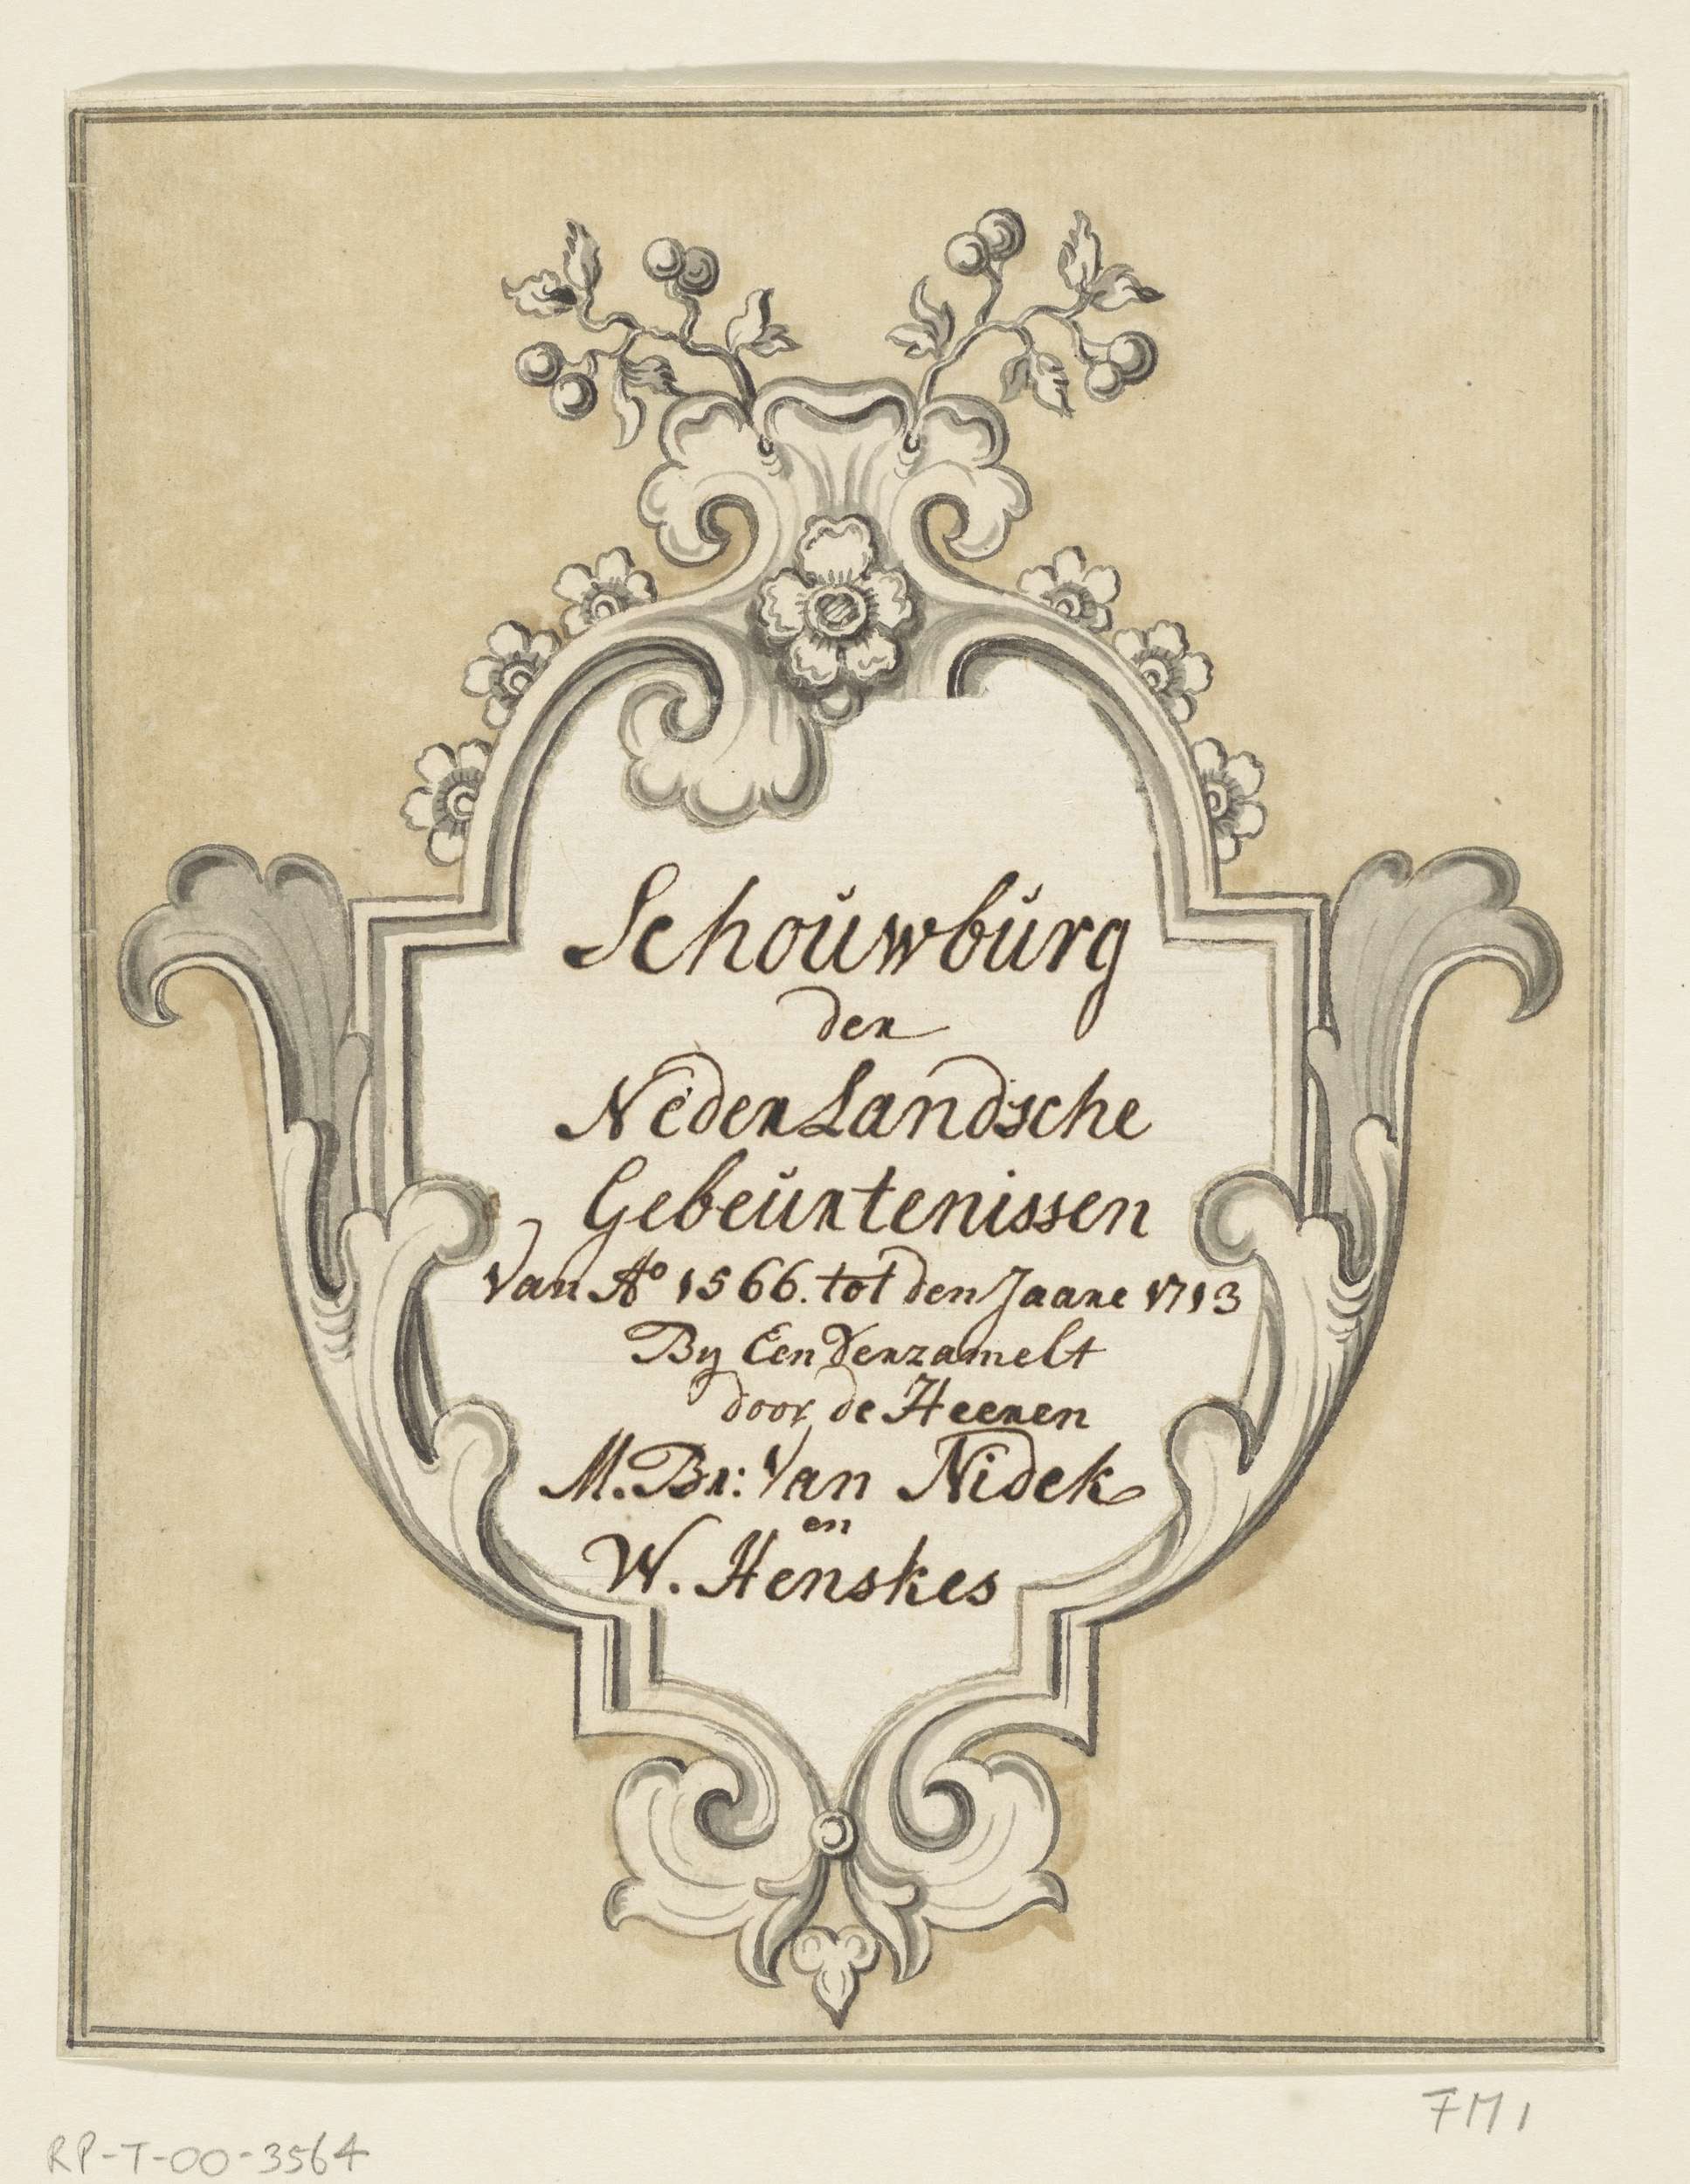 Schouwburg
der
Nederlandsche
Gebeurtenissen
Van Aº 1566. tot den Jaare 1713
By Een Verzamelt
door de Heeren
M. Br: Van Nidek
en
W. Henskes
FM 1
RP-T-00-3564